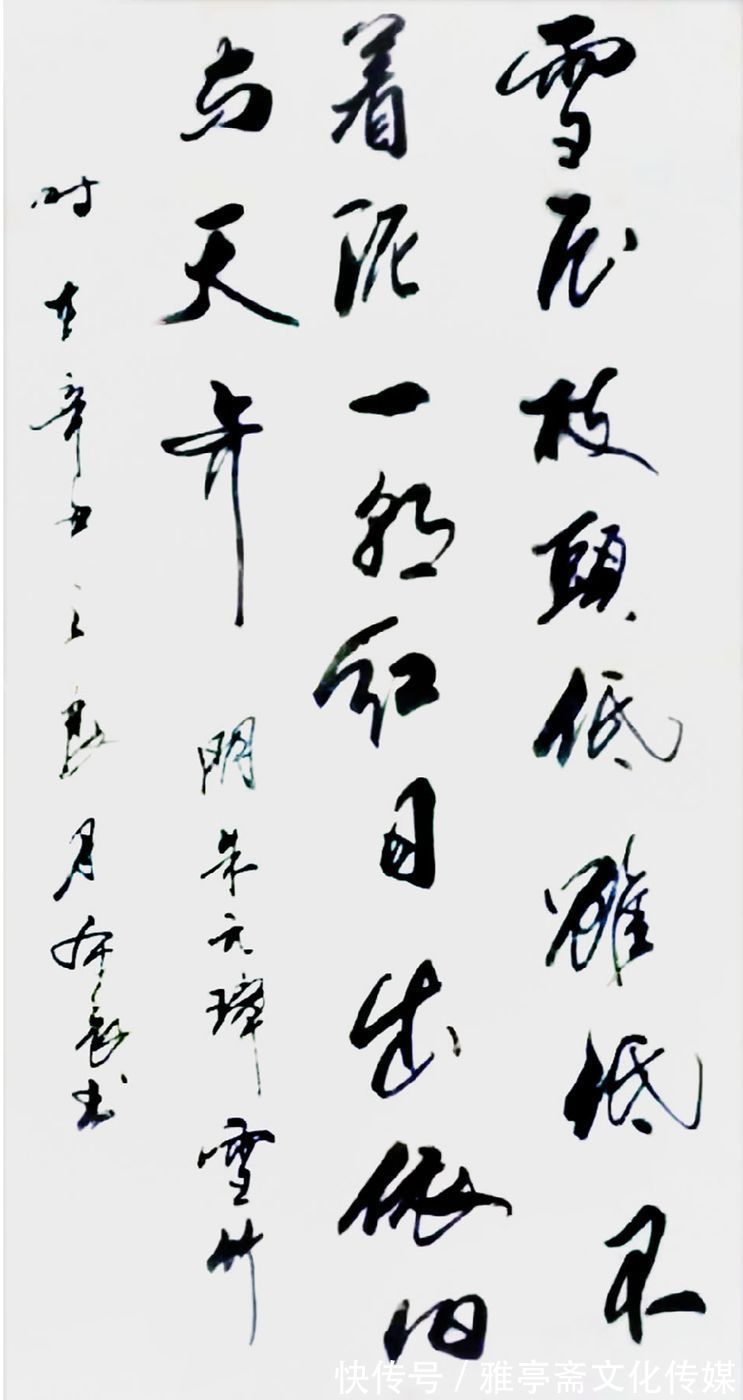 雪压枝頭低雖低不
着泥一朝红日出依旧
与天齐 明朱元璋雪竹
时在辛丑之良月书
快传号 / 雅亭斋文化传媒